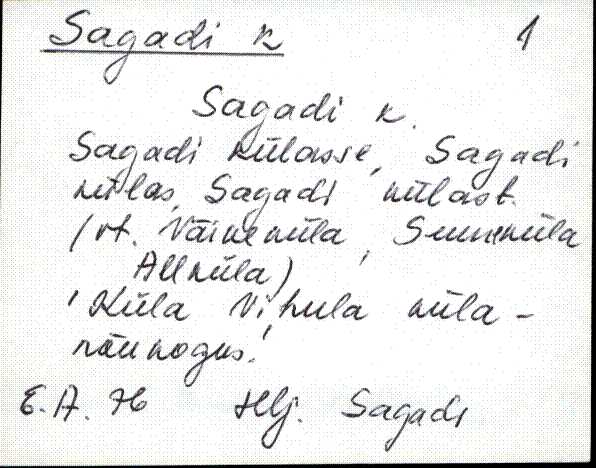 Sagadi k 1
Sagadi k.
Sagadi külasse, Sagadi
külas, Sagadi külast.
(vt. Väikeküla, Suureküla
Allküla)
'Küla Vihula küla-
nõukogus.'
E.A. 76 Hlj. Sagadi